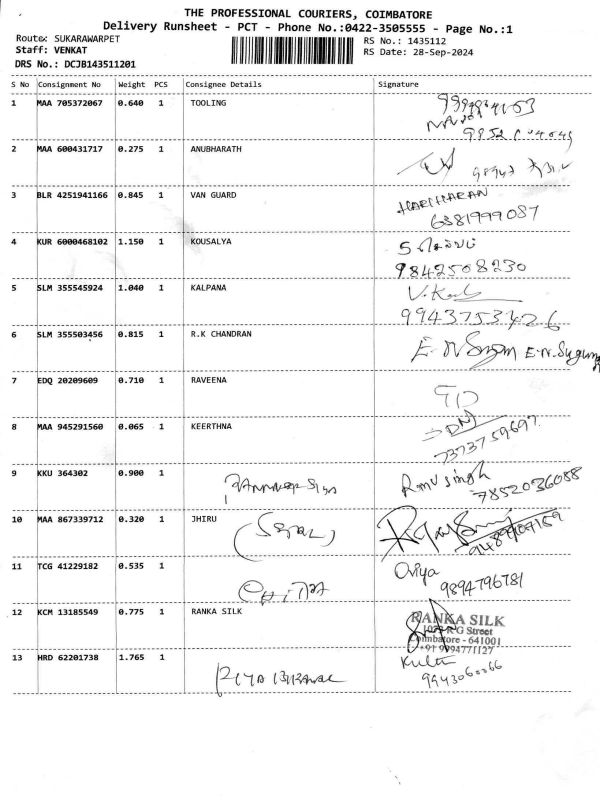 THE PROFESSIONAL COURIERS, COIMBATORE
Delivery Runsheet - PCT - Phone No.:0422-3505555 - Page No.:1
Route: SUKARAWARPET
RS No.: 1435112
Staff: VENKAT
RS Date: 28-Sep-2024
DRS No.: DCJB143511201
S No Consignment No Weight PCS Consignee Details Signature
1 MAA 705372067 0.640 1 TOOLING
2 MAA 600431717 0.275 1 ANUBHARATH
3 BLR 4251941166 0.845 1 VAN GUARD HARIHARAN
6381999087
4 KUR 6000468102 1.150 1 KOUSALYA
9842508230
5 SLM 355545924 1.040 1 KALPANA
9943753426
6 SLM 355503456 0.815 1 R.K CHANDRAN
7 EDQ 20209609 0.710 1 RAVEENA
8 MAA 945291560 0.065 1 KEERTHNA
7373759697
9 KKU 364302 0.900 1 Singh
7852036088
10 MAA 867339712 0.320 1 JHIRU
9489107189
11 TCG 41229182 0.535 1 Oviya
9894796781
12 KCM 13185549 0.775 1 RANKA SILK RANKA SILK
R G Street
Coimbatore - 641001
+91 9994771127
13 HRD 62201738 1.765 1